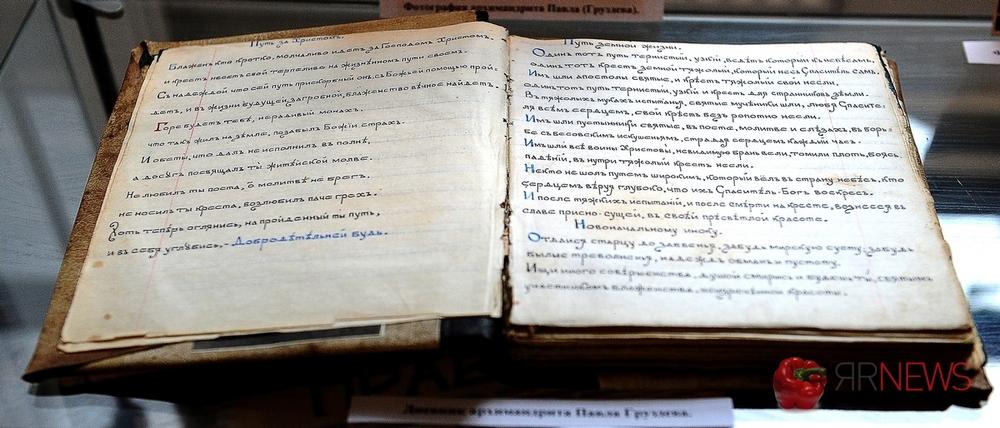 Фотография архимандрита Павла (Груздева).
Путь за Христомъ.
Блаженъ кто кротко, молчаливо идетъ за Господомъ Христомъ.
и крестъ несетъ свой терпеливо на жизненномъ пути своемъ.
Съ надеждой что сей путь прискорбной онъ, съ Божьей помощью прой,
детъ, и в жизни будущей, загробной, блаженство вѣчное найдетъ.
Горе будетъ тебѣ, нерадивый монахъ.
что такъ жилъ на землѣ, позабылъ Божiй страхъ.
И обеты, что далъ не исполнилъ вполнѣ,
а досугъ посвящалъ ты житейской молвѣ.
Не любилъ ты поста, о молитвѣ не брегъ.
не носилъ ты креста, возлюбилъ паче грехъ.
Хоть теперь оглянись, на пройденный ты путь,
и въ себя углубись,- Добродѣтѣльней будь.
Путь земной жизни.
Одинъ тотъ путь тернистый, узкій, вслѣтъ который къ небесамъ.
одинъ тотъ крестъ земной тяжолый, который несъ Спаситель самъ.
Имъ шли апостолы святые, и крѣстъ тяжолый свой несли.
одинъ тотъ путь тернистый, узкій и крестъ для странников земли.
Въ тяжолыхъ мукахъ испытанія, святые мученики шли, любя Спасите-
ля всемъ сердцемъ, свой крѣсъ без ропотно несли.
Имъ шли пустынники святые, въ посте, молитве и слѣзахъ, въ борь-
бе съ бесовскимъ искушеньямъ, страдая сердцемъ каждый часъ.
Имъ шли всѣ воины Христовы, невидимую брань вели, томили плоть, боясь
падѣній, въ нутри тяжолый крестъ несли.
Некто не шолъ путемъ широкимъ, который вёлъ въ страну небесъ, кто
сердцемъ вѣруя глубоко, что ихъ Спаситель-Богъ воскресъ.
И после тяжкихъ испытаній, и после смерти на крестѣ, вознесся въ
славе присно-сущей, въ своей прѣсвѣтлой красотѣ.
Новоначальному иноку.
Отдайся старцу до забвенья, забудь мирскую суету, забудь
былые треволненія, надеждъ обманъ и пустоту.
Ищи иного совѣршенства, душой смирись и будешь ты, святымъ
участникомъ блаженства, неизречённой красоты.
Дневник архимандрита Павла Груздева.
ЯRNEWS